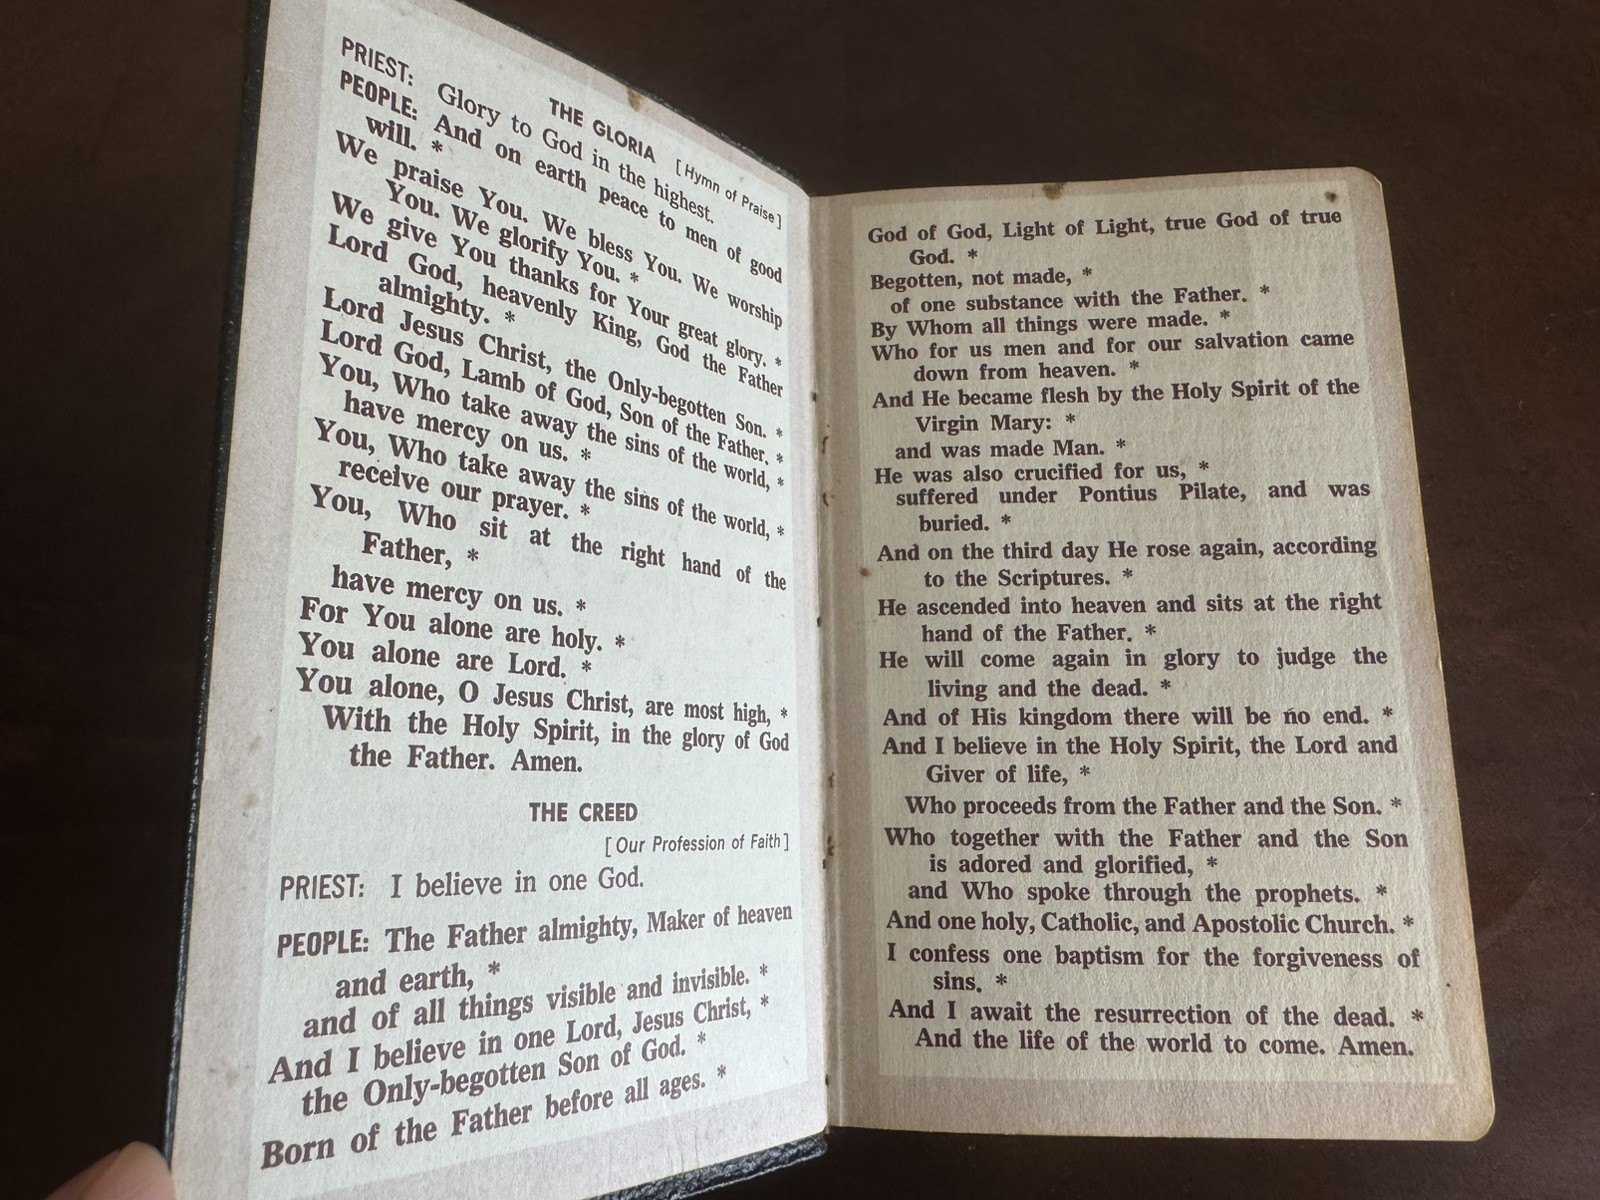 THE GLORIA
[Hymn of Praise]
PRIEST: Glory to God in the highest.
PEOPLE: And on earth peace to men of good
will. *
We praise You. We bless You. We worship
You. We glorify You. *
We give You thanks for Your great glory. *
Lord God, heavenly King, God the Father
almighty. *
Lord Jesus Christ, the Only-begotten Son. *
Lord God, Lamb of God, Son of the Father. *
You, Who take away the sins of the world, *
have mercy on us. *
You, Who take away the sins of the world, *
receive our prayer. *
You, Who sit at the right hand of the
Father, *
have mercy on us. *
For You alone are holy. *
You alone are Lord. *
You alone, O Jesus Christ, are most high, *
With the Holy Spirit, in the glory of God
the Father. Amen.
THE CREED
[Our Profession of Faith]
PRIEST: I believe in one God.
PEOPLE: The Father almighty, Maker of heaven
and earth, *
and of all things visible and invisible. *
And I believe in one Lord, Jesus Christ, *
the Only-begotten Son of God. *
Born of the Father before all ages. *
God of God, Light of Light, true God of true
God. *
Begotten, not made, *
of one substance with the Father. *
By Whom all things were made. *
Who for us men and for our salvation came
down from heaven. *
And He became flesh by the Holy Spirit of the
Virgin Mary: *
and was made Man. *
He was also crucified for us, *
suffered under Pontius Pilate, and was
buried. *
And on the third day He rose again, according
to the Scriptures. *
He ascended into heaven and sits at the right
hand of the Father. *
He will come again in glory to judge the
living and the dead. *
And of His kingdom there will be no end. *
And I believe in the Holy Spirit, the Lord and
Giver of life, *
Who proceeds from the Father and the Son. *
Who together with the Father and the Son
is adored and glorified, *
and Who spoke through the prophets. *
And one holy, Catholic, and Apostolic Church. *
I confess one baptism for the forgiveness of
sins. *
And I await the resurrection of the dead. *
And the life of the world to come. Amen.